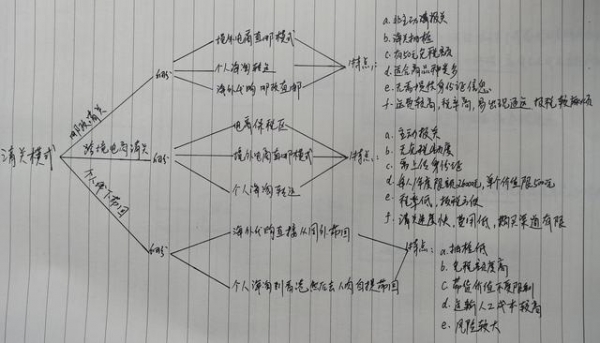 清关模式
邮政清关
包括
境外电商直邮模式
个人海淘转运
海外代购邮政直邮
特点:
a. 非主动清报关
b. 海关抽检
c. 有50元免税额
d. 适合商品种类多
e. 无需提供身份证信息
f. 运费较高,税率高,易出现延迟 报税较麻烦
跨境电商清关
包括
电商保税区
境外电商直邮模式
个人海淘转运
特点:
a. 主动报关
b. 无免税额度
c. 需上传身份证
d. 每人/年度限额2600元,单个价值限500元
e. 税率低,报税方便
f. 清关速度快,费用低,购买渠道有限
个人线下带回
包括
海外代购直播从国外带回
个人海淘到香港,然后去人肉自提带回
特点:
a. 抽检低
b. 免税额度高
c. 带货价值不受限制
d. 运输人工成本较高
e. 风险较大